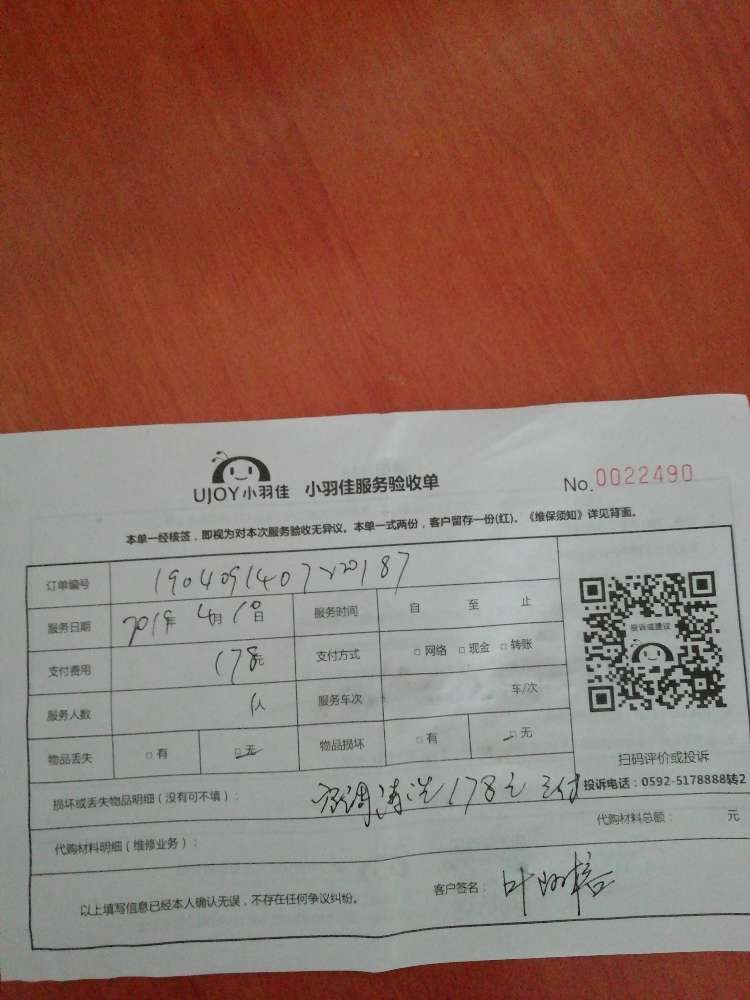 UJOY小羽佳 小羽佳服务验收单 No.0022490
本单一经核签，即视为对本次服务验收无异议。本单一式两份，客户留存一份(红)。《维保须知》详见背面。
订单编号 190409140720187
服务日期 2019年 4月 10日 服务时间 自 至 止
支付费用 178元 支付方式 □网络 □现金 □转账
服务人数 1人 服务车次 车/次
物品丢失 □有 □无 物品损坏 □有 □无
投诉或建议
扫码评价或投诉
投诉电话：0592-5178888转2
损坏或丢失物品明细（没有可不填）： 空调清洗178元 已付
代购材料明细（维修业务）： 代购材料总额： 元
以上填写信息已经本人确认无误，不存在任何争议纠纷。 客户签名： 叶